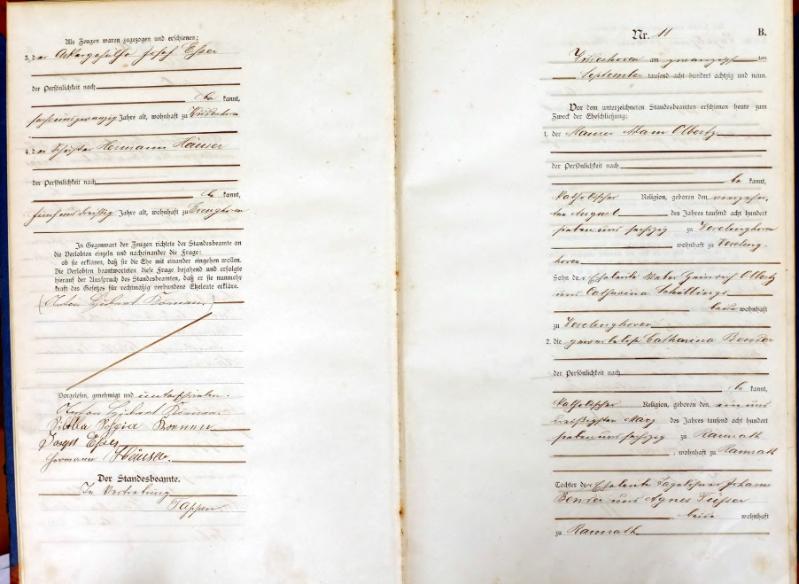 Als Zeugen waren zugezogen und erschienen:
3. der Ackergehülfe Josef Esser
der Persönlichkeit nach
be kannt,
sechsundzwanzig Jahre alt, wohnhaft zu
4. der Hermann Häuser
der Persönlichkeit nach
be kannt,
fünfunddreißig Jahre alt, wohnhaft zu
In Gegenwart der Zeugen richtete der Standesbeamte an
die Verlobten einzeln und nacheinander die Frage:
ob sie erklären, daß sie die Ehe mit einander eingehen wollen.
Die Verlobten beantworteten diese Frage bejahend und erfolgte
hierauf der Ausspruch des Standesbeamten, daß er sie nunmehr
kraft des Gesetzes für rechtmäßig verbundene Eheleute erkläre.
Hubert
Vorgelesen, genehmigt und unterschrieben.
Hubert
Sibilla
Joseph Esser
Hermann Häuser.
Der Standesbeamte.
In Vertretung
Tappen
Nr. 11
B.
am zwanzigsten
September tausend acht hundert achtzig und neun.
Vor dem unterzeichneten Standesbeamten erschienen heute zum
Zweck der Eheschließung:
1. der Maurer Adam Olbertz
der Persönlichkeit nach
be kannt,
katholischer Religion, geboren den vierzehn-
ten August des Jahres tausend acht hundert
sieben und sechzig zu
wohnhaft zu
Sohn der Eheleute Peter Heinrich Olbertz
und Catharina Schillings
beide wohnhaft
zu
2. die gewerblose Catharina Bender
der Persönlichkeit nach
be kannt,
katholischer Religion, geboren den ein und
dreißigsten März des Jahres tausend acht hundert
sieben und sechzig zu Ramrath
, wohnhaft zu Ramrath
Tochter der Eheleute Tagelöhner Johann
Bender und Agnes
beide wohnhaft
zu Ramrath